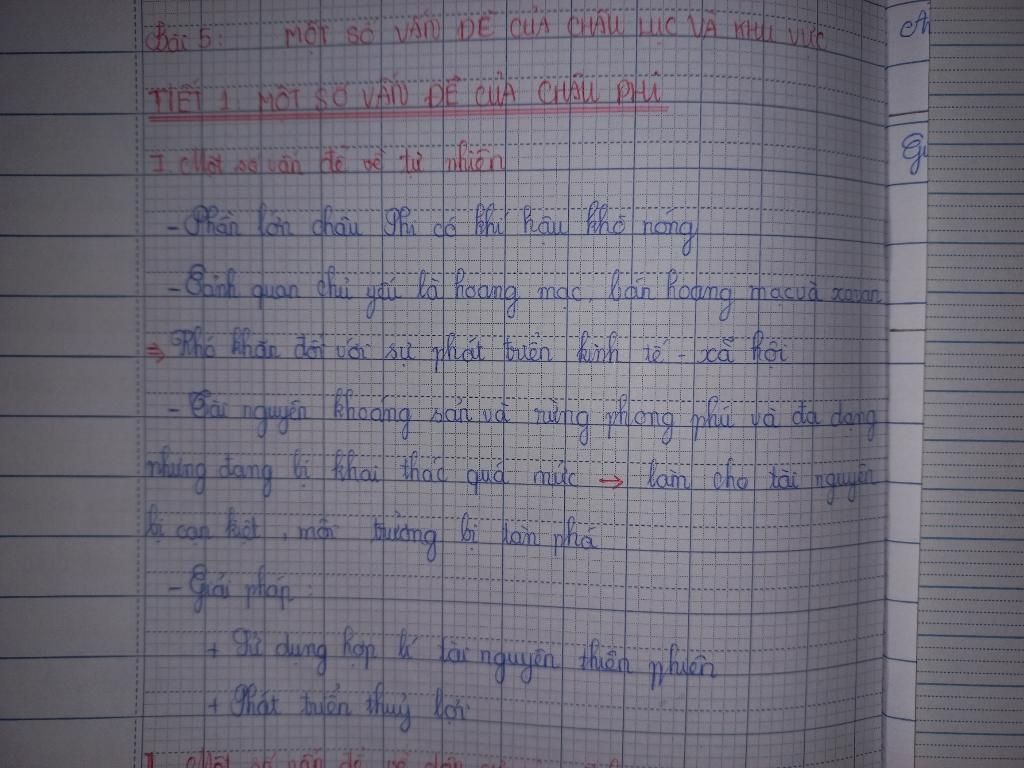 Bài 5: MỘT SỐ VẤN ĐỀ CỦA CHÂU LỤC VÀ KHU VỰC
TIẾT 1. MỘT SỐ VẤN ĐỀ CỦA CHÂU PHI
I. Một số vấn đề về tự nhiên
- Phần lớn châu Phi có khí hậu khô nóng
- Cảnh quan chủ yếu là hoang mạc, bán hoang mạc và xavan
⇒ Khó khăn đối với sự phát triển kinh tế - xã hội
- Tài nguyên khoáng sản và rừng phong phú và đa dạng
nhưng đang bị khai thác quá mức → làm cho tài nguyên
bị cạn kiệt, môi trường bị tàn phá
- Giải pháp:
+ Sử dụng hợp lí tài nguyên thiên nhiên
+ Phát triển thuỷ lợi
Một số vấn đề về dân cư